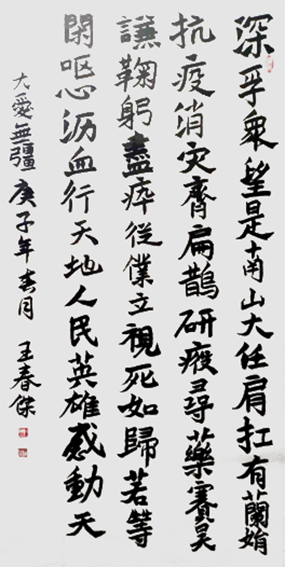 深孚衆望是南山大任肩扛有蘭娟
抗疫消灾齊扁鵲研疫尋藥賽昊
謙鞠躬盡瘁從僕立視死如歸若等
閑嘔心沥血行天地人民英雄感動天
大愛無疆庚子年春月 王春傑